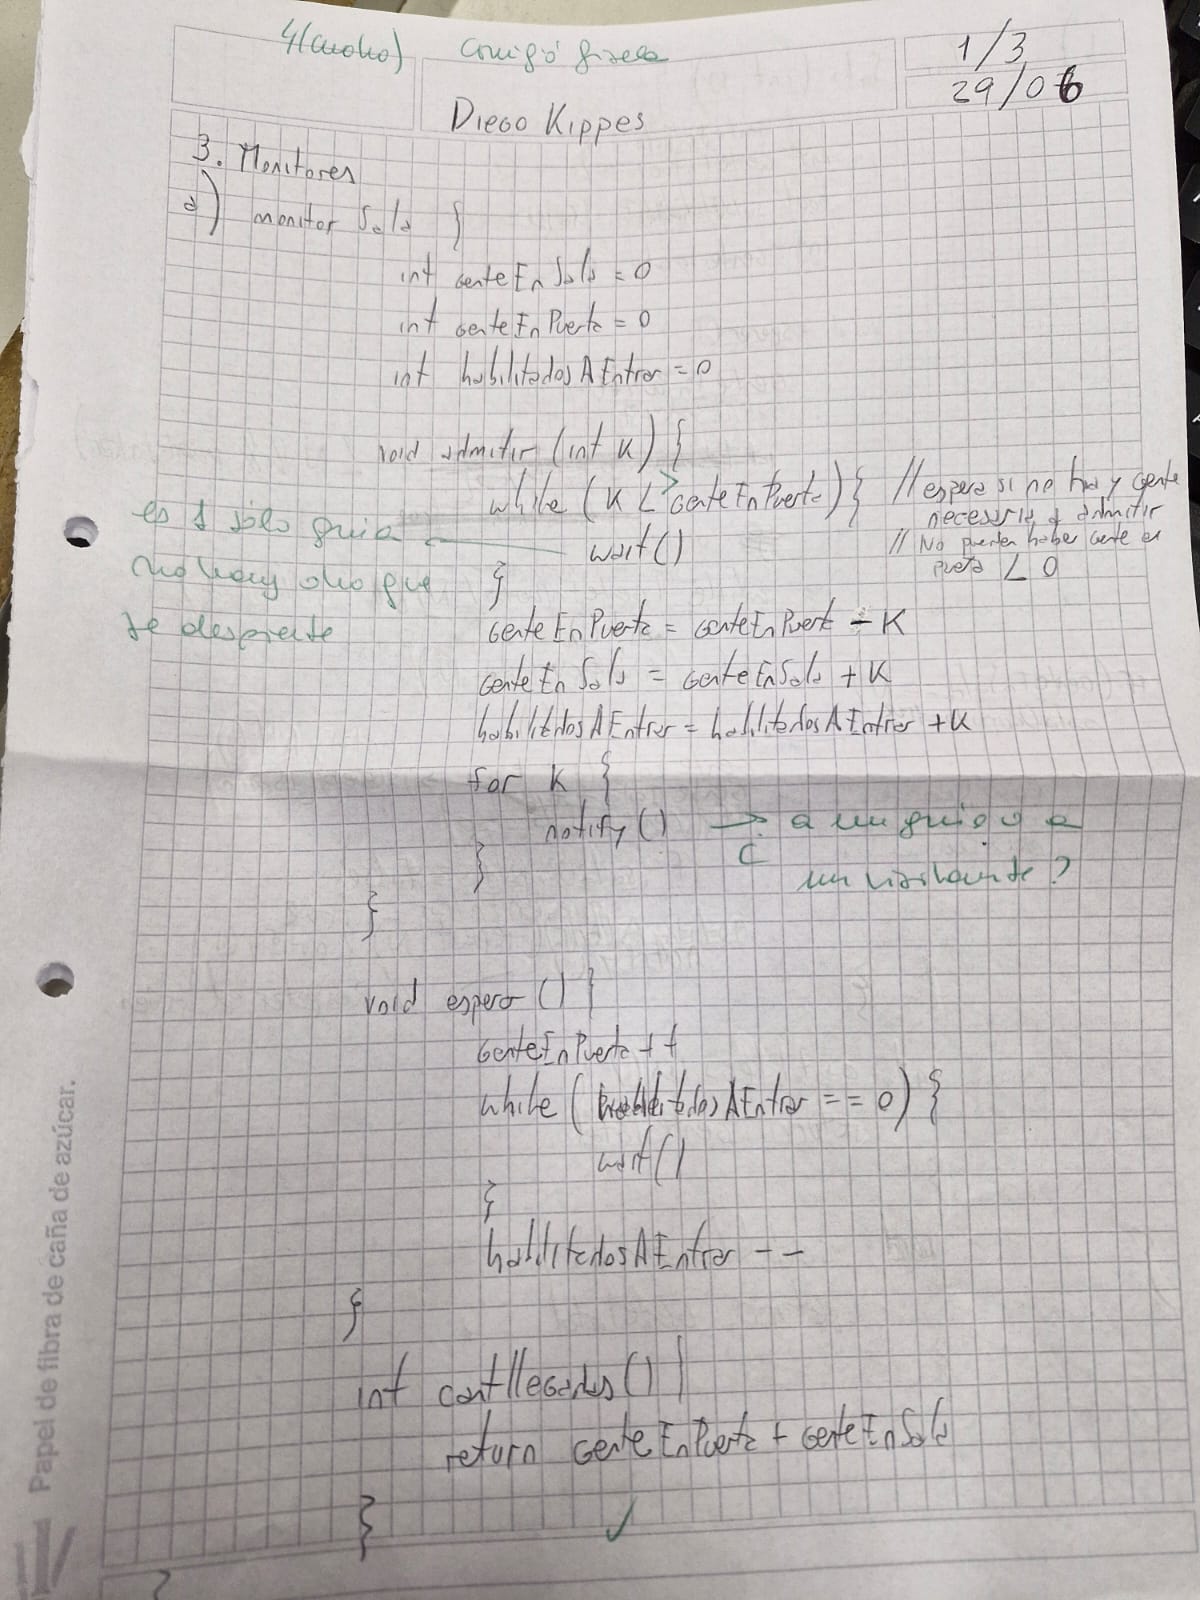 4(cuatro) Corrigió Gisela
1/3
29/06
Diego Kippes
3. Monitores
a) monitor Sala {
int genteEnSala = 0
int genteEnPuerta = 0
int habilitadosAEntrar = 0
void admitir (int K) {
while (K > genteEnPuerta) { // espera si no hay gente
necesaria a admitir
// No pueden haber gente en
puerta < 0
wait()
}
es 1 solo guia
no hay otro que
te despierte
genteEnPuerta = genteEnPuerta - K
genteEnSala = genteEnSala + K
habilitadosAEntrar = habilitadosAEntrar + K
for K {
notify() → ¿ a un guia o a
un visitante?
}
}
void espera () {
genteEnPuerta ++
while (habilitadosAEntrar == 0) {
wait()
}
habilitadosAEntrar --
}
int cantLlegados() {
return genteEnPuerta + genteEnSala
}
✓
}
Papel de fibra de caña de azúcar.